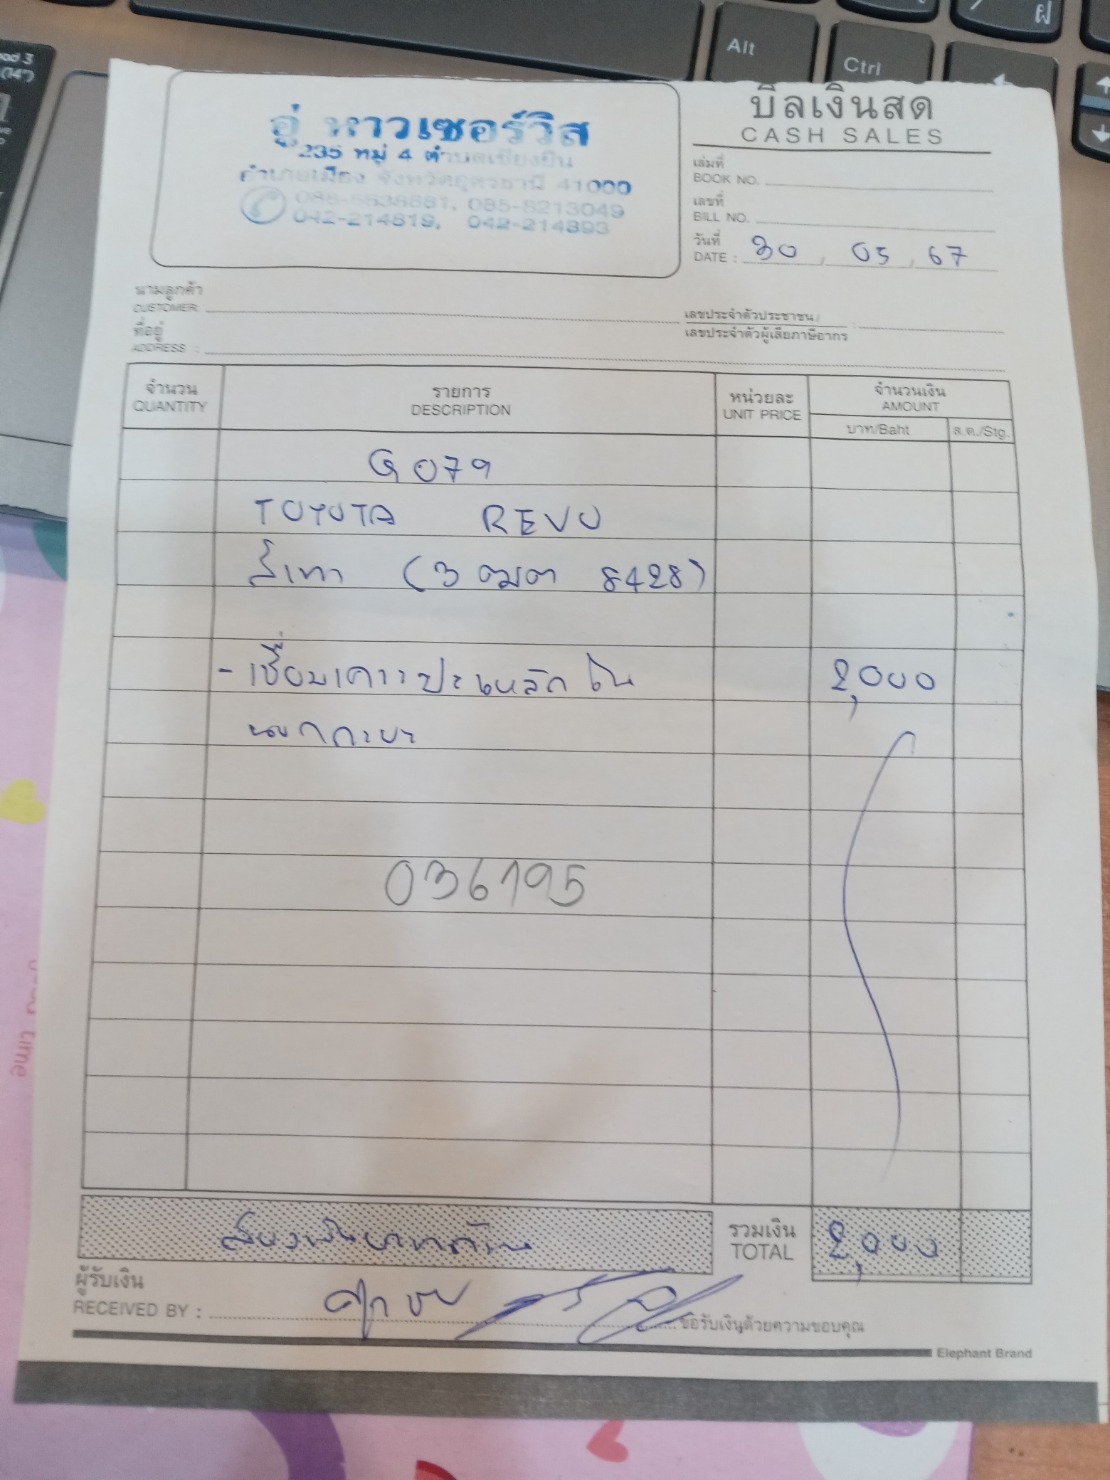 อู่ หาวเซอร์วิส
235 หมู่ 4 ตำบลเชียงยืน
อำเภอเมือง จังหวัดอุดรธานี 41000
085-8213049
042-214819, 042-214893
บิลเงินสด
CASH SALES
เล่มที่
BOOK NO.
เลขที่
BILL NO.
วันที่
DATE : 30 , 05 , 67
นามลูกค้า
CUSTOMER:
เลขประจำตัวประชาชน /
เลขประจำตัวผู้เสียภาษีอากร :
ที่อยู่
ADDRESS :
จำนวน รายการ หน่วยละ จำนวนเงิน
QUANTITY DESCRIPTION UNIT PRICE AMOUNT
บาท/Baht ส.ต./Stg.
G079
TOYOTA REVO
สีเทา (3 ฒต 8428)
- เชื่อมเคาะปะเหล็กใน 2,000
036195
สองพันบาทถ้วน
รวมเงิน
TOTAL 2,000
ผู้รับเงิน
RECEIVED BY :
ขอรับเงินด้วยความขอบคุณ
Elephant Brand
Alt
Ctrl
ฝ
(14")
time